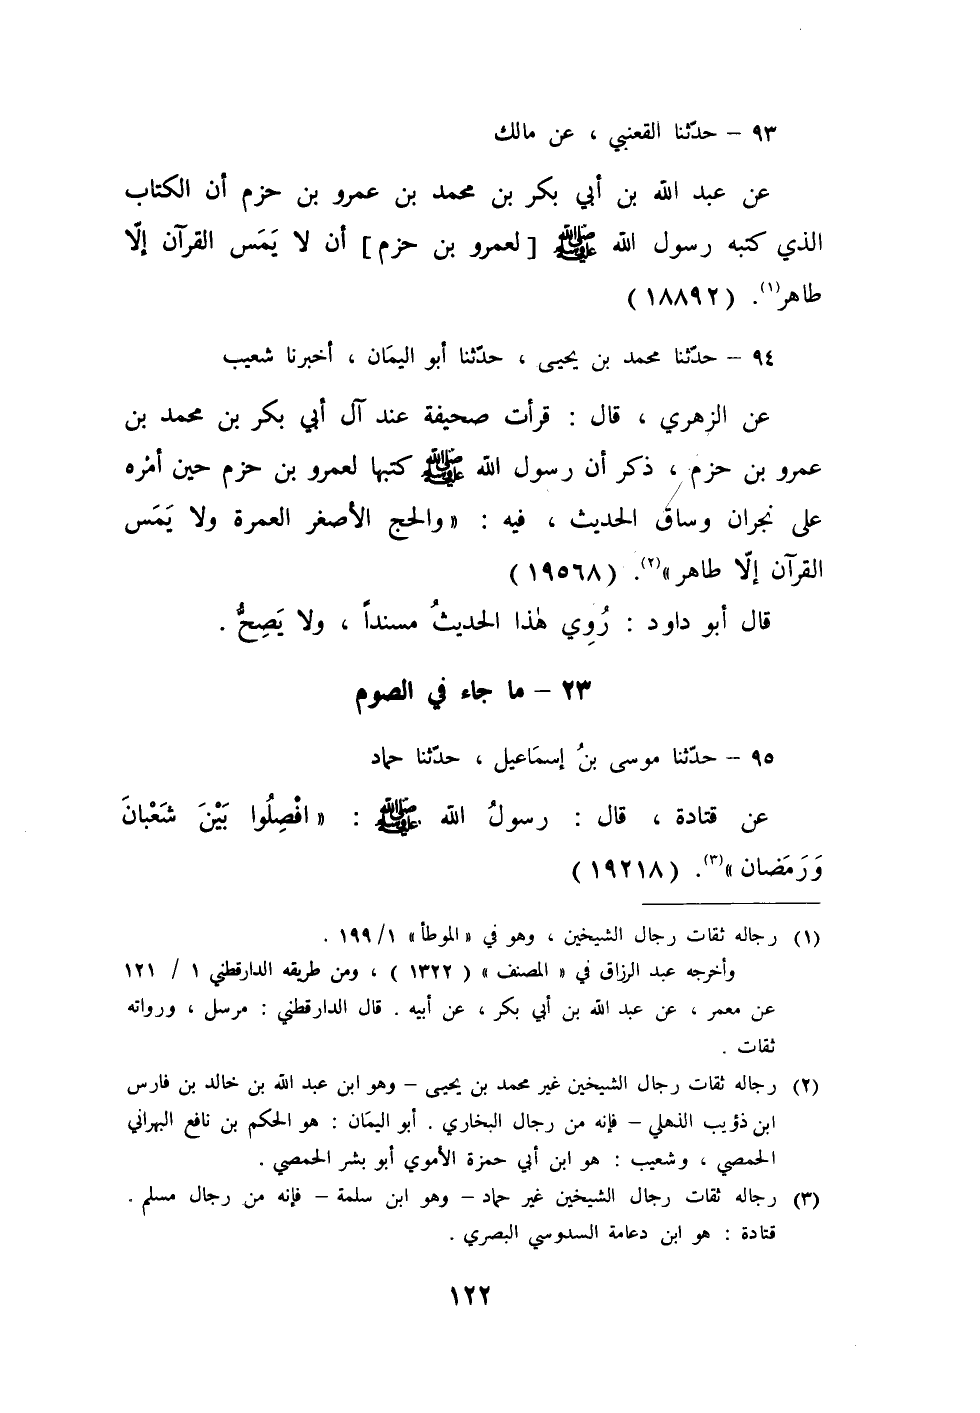 ٩٣ – حدّثنا القعنبي ، عن مالك
عن عبد الله بن أبي بكر بن محمد بن عمرو بن حزم أن الكتاب
الذي كتبه رسول الله ﷺ [ لعمرو بن حزم ] أن لا يَمَس القرآن إلّا
طاهر(١). (١٨٨٩٢)
٩٤ – حدّثنا محمد بن يحيى ، حدّثنا أبو اليمَان ، أخبرنا شعيب
عن الزهري ، قال : قرأت صحيفة عند آل أبي بكر بن محمد بن
عمرو بن حزم ، ذكر أن رسول الله ﷺ كتبها لعمرو بن حزم حين أمْره
على نجران وساق الحديث ، فيه : «والحج الأصغر العمرة ولا يَمَس
القرآن إلّا طاهر»(٢). (١٩٥٦٨)
قال أبو داود : رُوِي هٰذا الحديثُ مسنداً ، ولا يَصِحُّ .
٢٣ – ما جاء في الصوم
٩٥ – حدّثنا موسى بنُ إسمَاعيل ، حدّثنا حماد
عن قتادة ، قال : رسولُ الله ﷺ : «افْصِلُوا بَيْنَ شَعْبانَ
وَرَمَضان»(٣). (١٩٢١٨)
(١) رجاله ثقات رجال الشيخين ، وهو في «الموطأ» ١/ ١٩٩ .
وأخرجه عبد الرزاق في « المصنف » ( ١٣٢٢ ) ، ومن طريقه الدارقطني ١ / ١٢١
عن معمر ، عن عبد الله بن أبي بكر ، عن أبيه . قال الدارقطني : مرسل ، ورواته
ثقات .
(٢) رجاله ثقات رجال الشيخين غير محمد بن يحيى – وهو ابن عبد الله بن خالد بن فارس
ابن ذؤيب الذهلي – فإنه من رجال البخاري . أبو اليمَان : هو الحكم بن نافع البهراني
الحمصي ، وشعيب : هو ابن أبي حمزة الأموي أبو بشر الحمصي .
(٣) رجاله ثقات رجال الشيخين غير حماد – وهو ابن سلمة – فإنه من رجال مسلم .
قتادة : هو ابن دعامة السدوسي البصري .
١٢٢